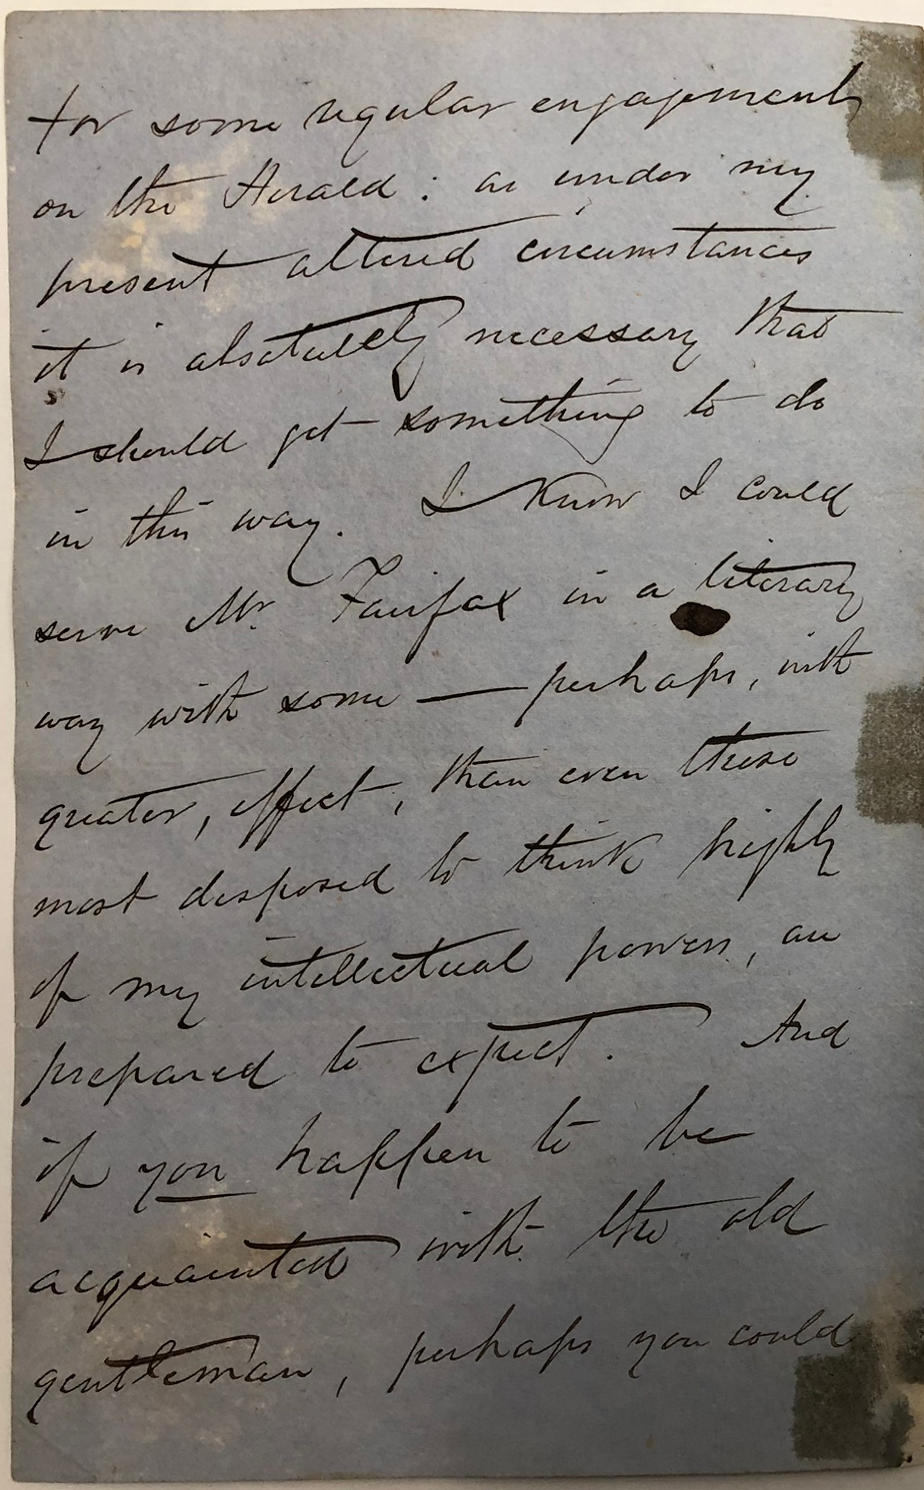 for some regular engagement
on the Herald: as under my
present altered circumstances
it is absolutely necessary that
I should get something to do
in this way. I know I could
serve Mr Fairfax in a literary
way with some — perhaps, with
greater, effect, than even those
most disposed to think highly
of my intellectual powers, are
prepared to expect. And
if you happen to be
acquainted with the old
gentleman, perhaps you could